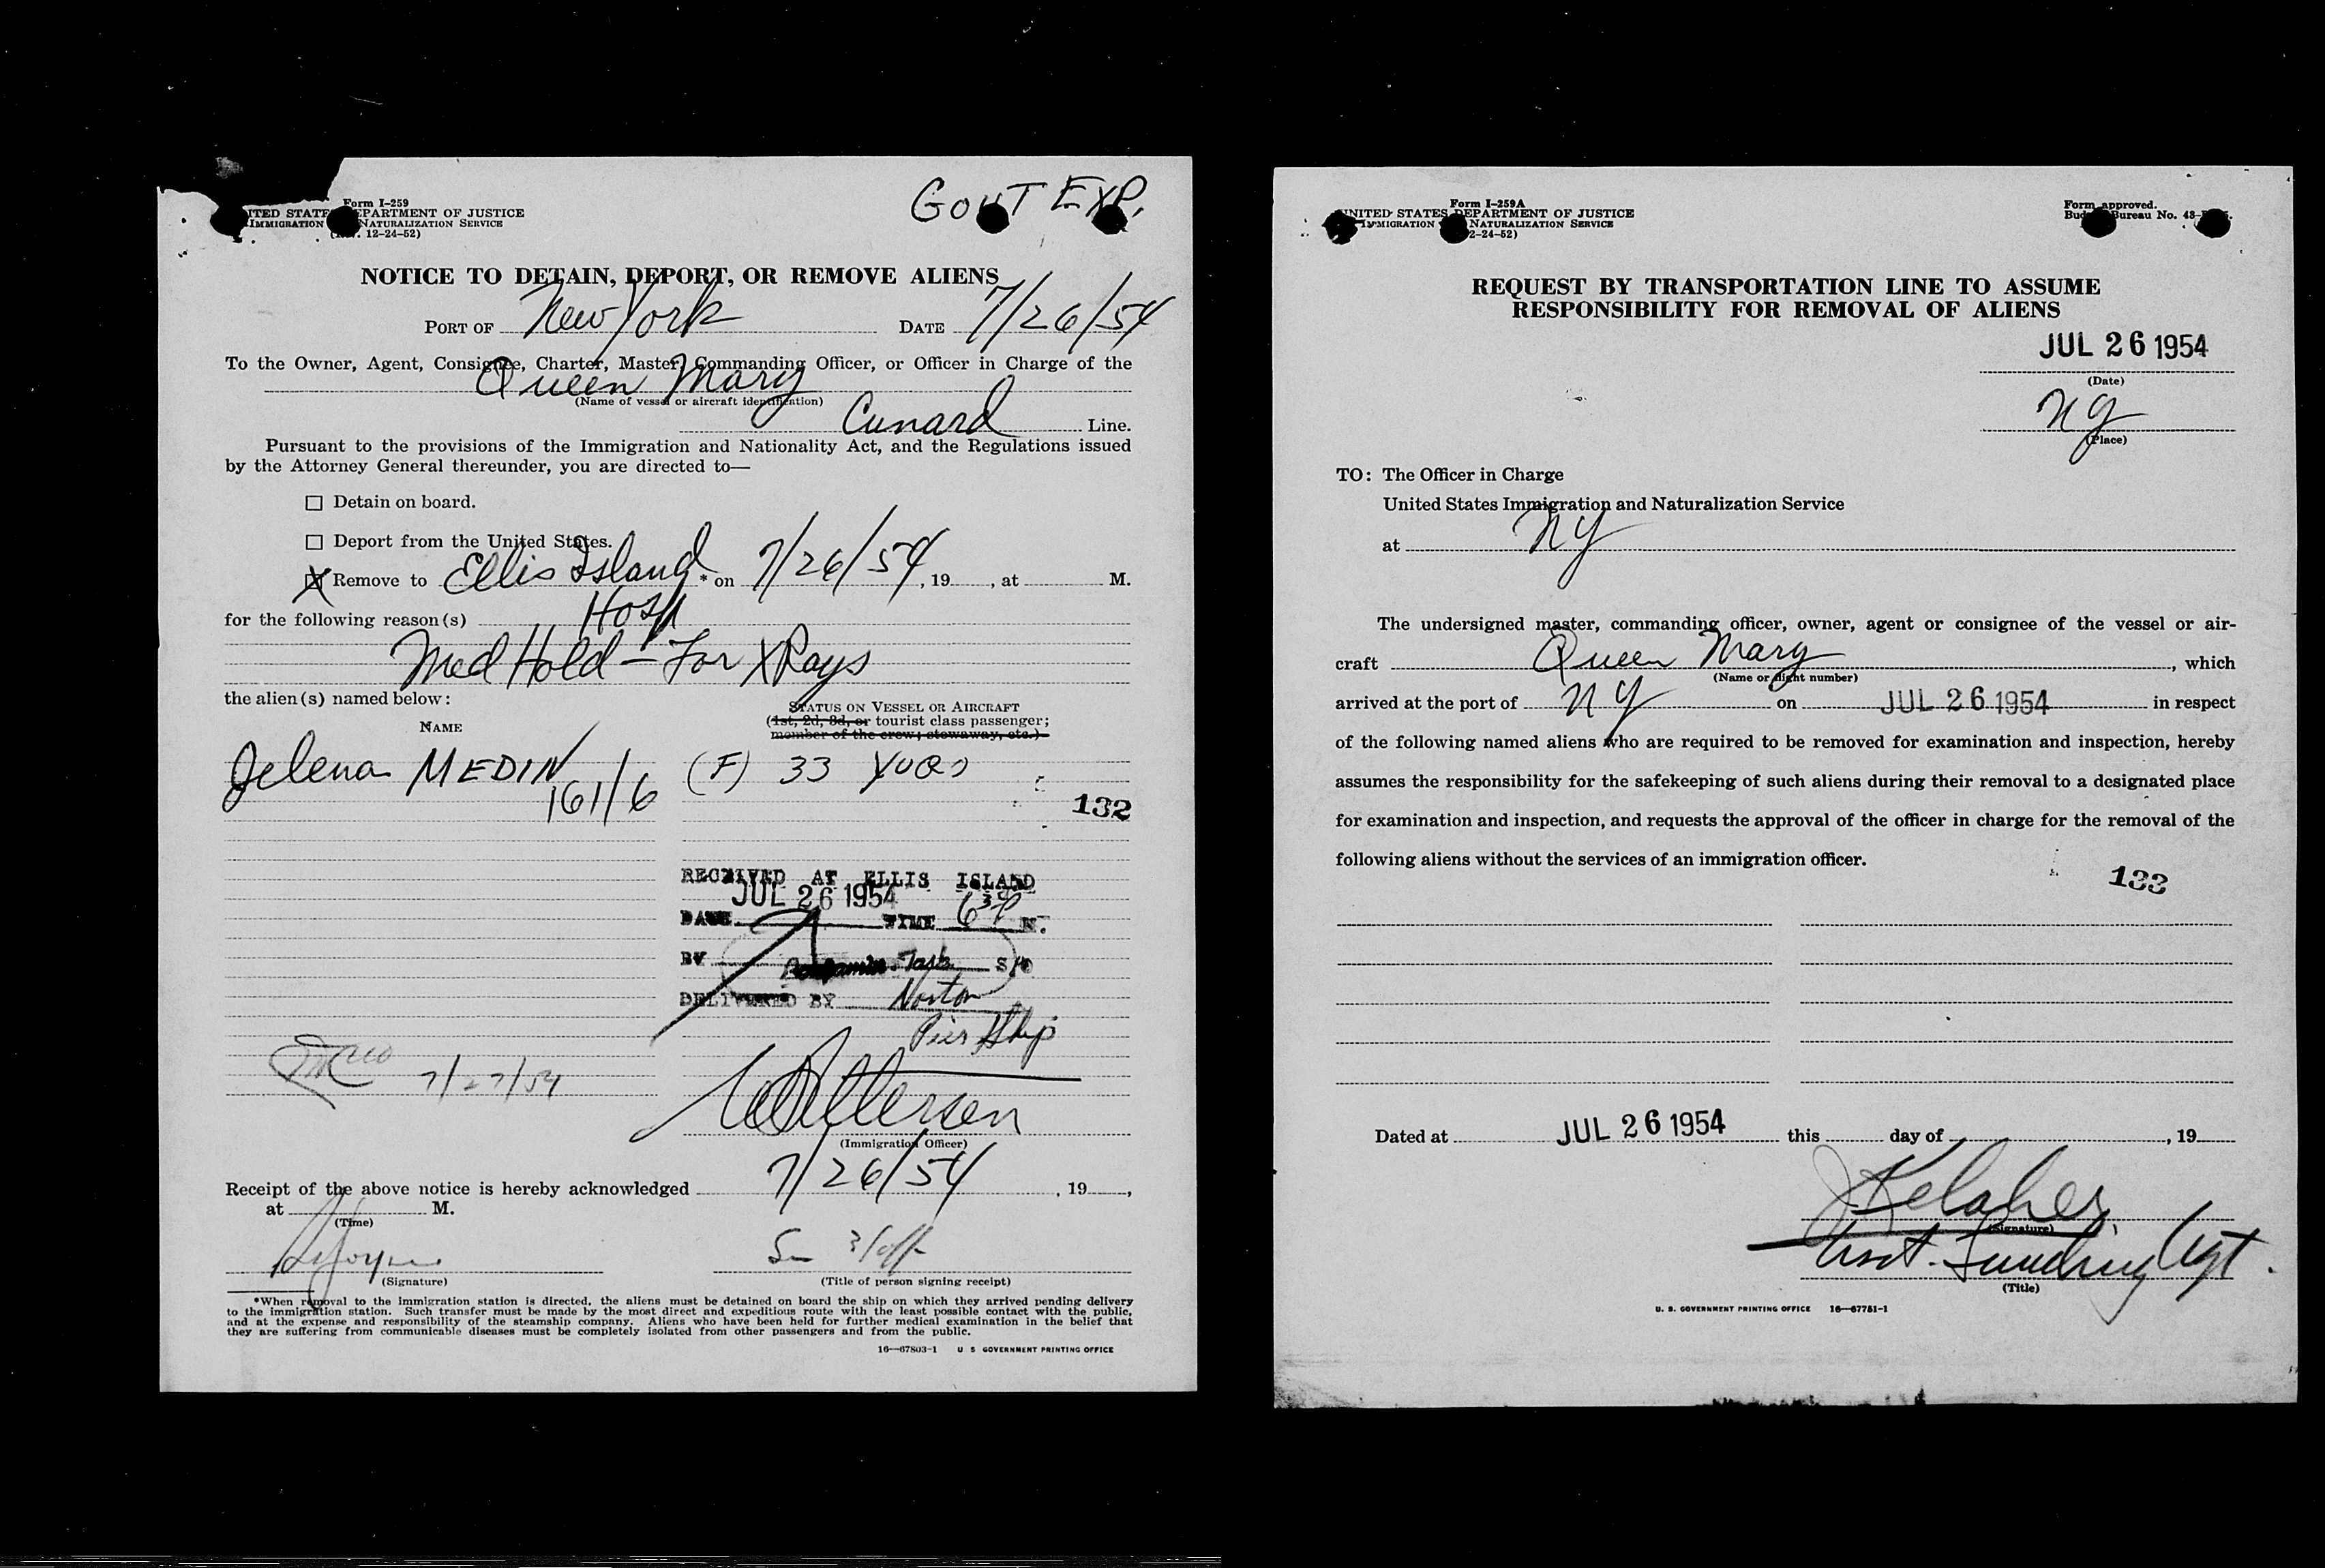 Form I-259
ITED STATE DEPARTMENT OF JUSTICE
IMMIGRATION NATURALIZATION SERVICE
12-24-52)
GOVT EXP.
NOTICE TO DETAIN, DEPORT, OR REMOVE ALIENS
PORT OF New York DATE 7/26/54
To the Owner, Agent, Consignee, Charter, Master, Commanding Officer, or Officer in Charge of the
Queen Mary
(Name of vessel or aircraft identification)
Cunard Line.
Pursuant to the provisions of the Immigration and Nationality Act, and the Regulations issued
by the Attorney General thereunder, you are directed to—
☐ Detain on board.
☐ Deport from the United States.
☒ Remove to Ellis Island * on 7/26/54, 19 , at M.
Hosp
for the following reason(s)
Med Hold – For XRays
the alien(s) named below:
NAME
STATUS ON VESSEL OR AIRCRAFT
(1st, 2d, 3d, or tourist class passenger;
member of the crew; stowaway, etc.)
Jelena MEDIN (F) 33 YUGO
161/6
132
RECEIVED AT ELLIS ISLAND
JUL 26 1954
DATE TIME 6 30 P M.
BY
DELIVERED BY Norton
Pier Ship
7/27/54
(Immigration Officer)
Receipt of the above notice is hereby acknowledged 7/26/54, 19 ,
at M.
(Time)
(Signature)
(Title of person signing receipt)
*When removal to the immigration station is directed, the aliens must be detained on board the ship on which they arrived pending delivery
to the immigration station. Such transfer must be made by the most direct and expeditious route with the least possible contact with the public,
and at the expense and responsibility of the steamship company. Aliens who have been held for further medical examination in the belief that
they are suffering from communicable diseases must be completely isolated from other passengers and from the public.
16—67803-1 U S GOVERNMENT PRINTING OFFICE
Form I-259A
UNITED STATES DEPARTMENT OF JUSTICE
IMMIGRATION NATURALIZATION SERVICE
2-24-52)
Form approved.
Bureau No. 43-
REQUEST BY TRANSPORTATION LINE TO ASSUME
RESPONSIBILITY FOR REMOVAL OF ALIENS
JUL 26 1954
(Date)
NY
(Place)
TO: The Officer in Charge
United States Immigration and Naturalization Service
at NY
The undersigned master, commanding officer, owner, agent or consignee of the vessel or air-
craft Queen Mary, which
(Name or flight number)
arrived at the port of NY on JUL 26 1954 in respect
of the following named aliens who are required to be removed for examination and inspection, hereby
assumes the responsibility for the safekeeping of such aliens during their removal to a designated place
for examination and inspection, and requests the approval of the officer in charge for the removal of the
following aliens without the services of an immigration officer.
133
Dated at JUL 26 1954 this day of , 19
J Kelaher
(Signature)
Asst. Landing Agt.
(Title)
U. S. GOVERNMENT PRINTING OFFICE 16—67751-1